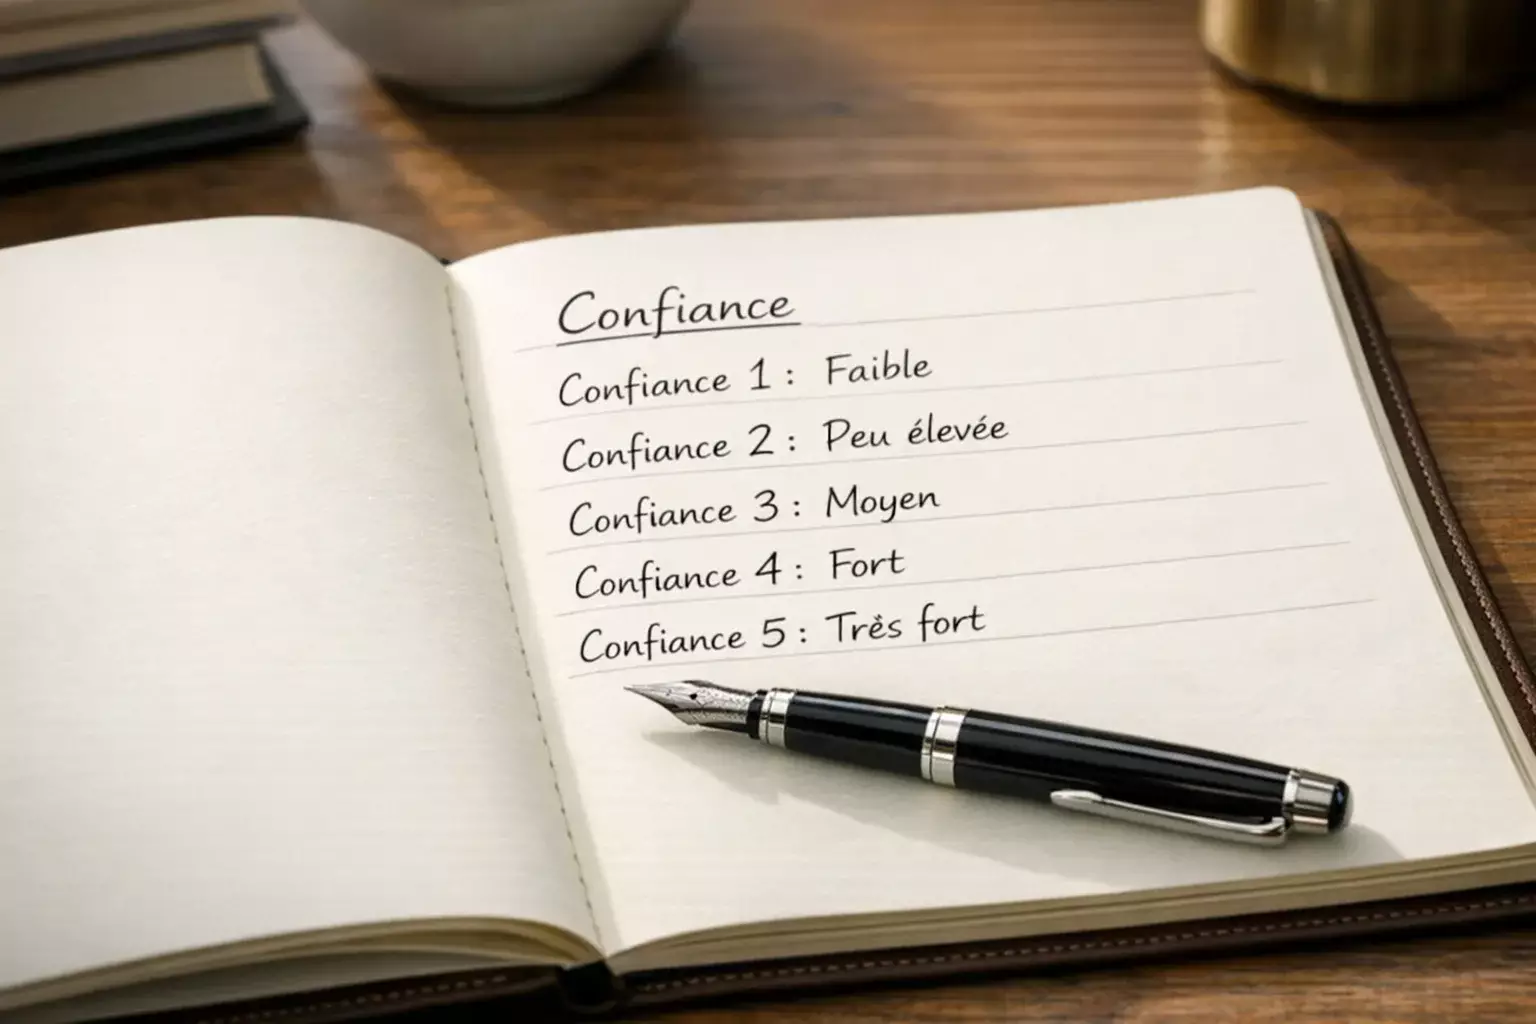 Confiance
Confiance 1 : Faible
Confiance 2 : Peu élevée
Confiance 3 : Moyen
Confiance 4 : Fort
Confiance 5 : Très fort